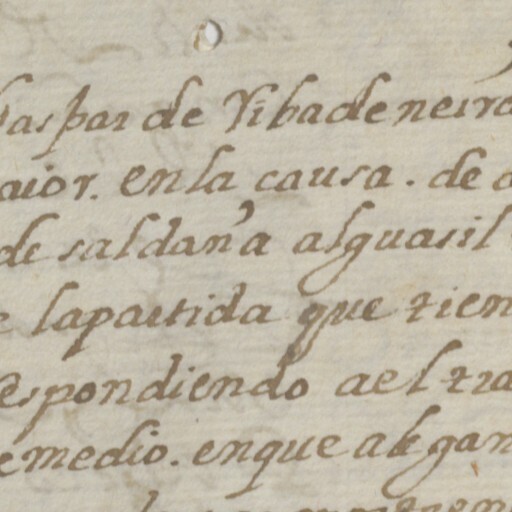 Gaspar de Ribadeneira
aior. en la causa. de
de saldaña alguasil
lapartida que tien
espondiendo a el tra
emedio. enque alegan